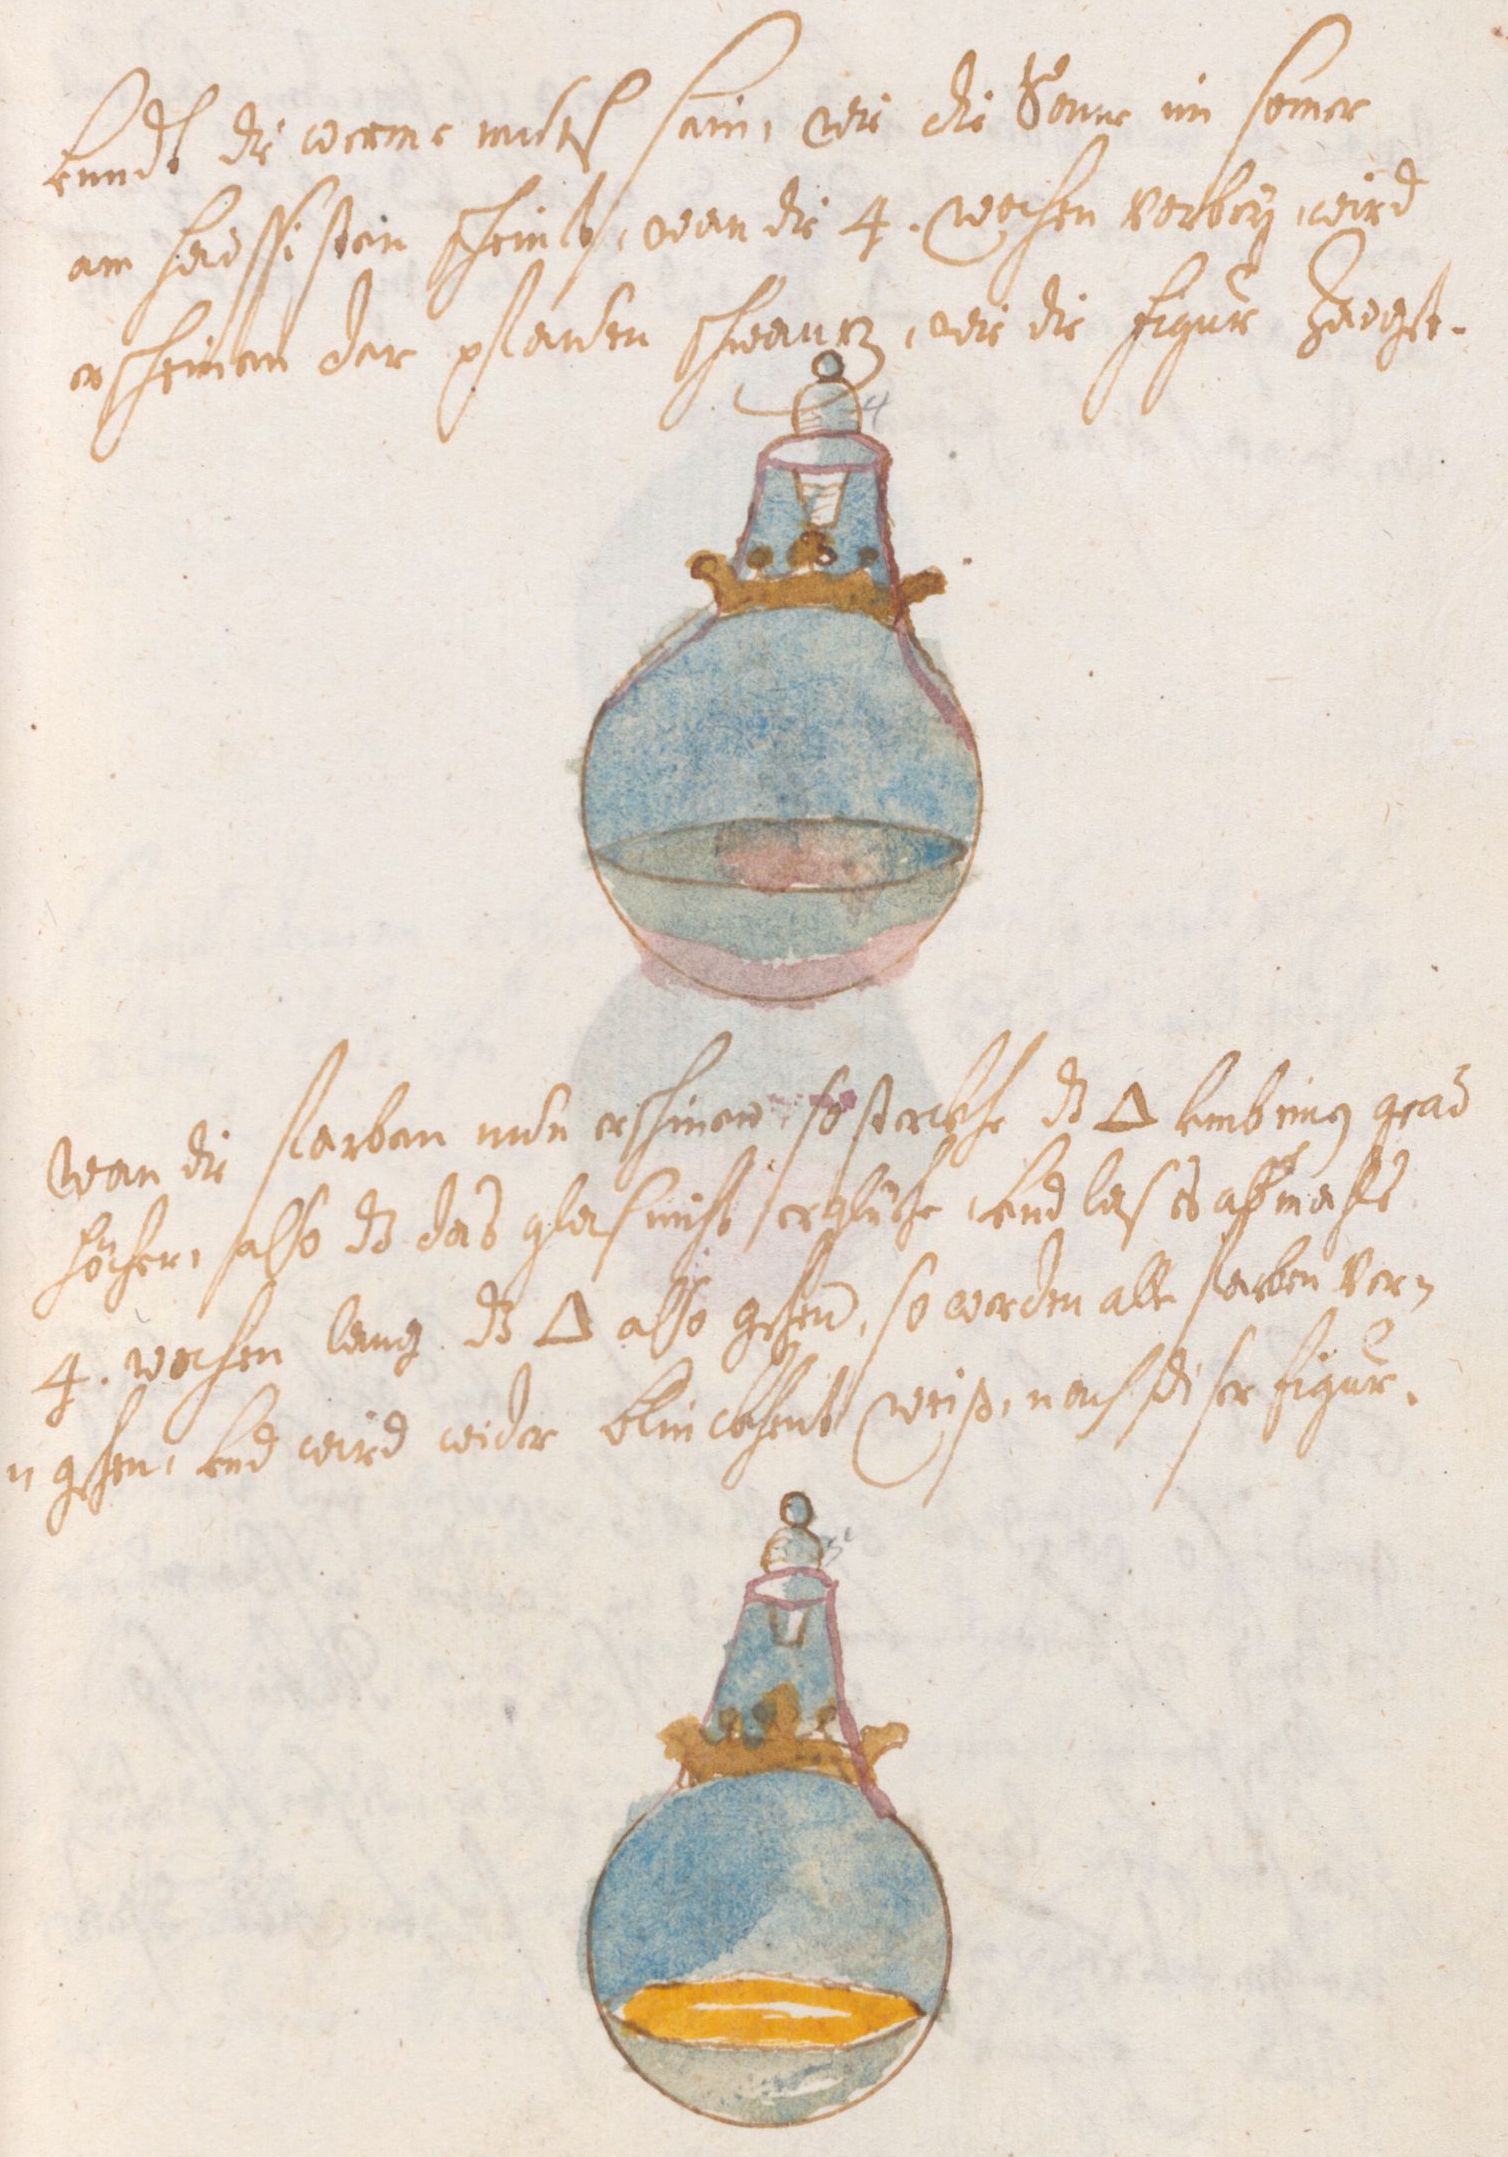 vnndt die werme mues sein, wie die Sonne im somer
am haissisten scheindt, wan die 4. wochen verbey, wird
erscheinen der pfawen schwantz, wie die figur zaigt.
4
wan die farben nun erschinen, so sterckhe dz △ vmb ein grad
höcher, also dz das glas nicht erglüehe, vnd las es abermahls
4. wochen lang dz △ also gehen, so werden alle farben ver=
gehen, vnd wird wider blinckhent weiß, nach diser figur.
5